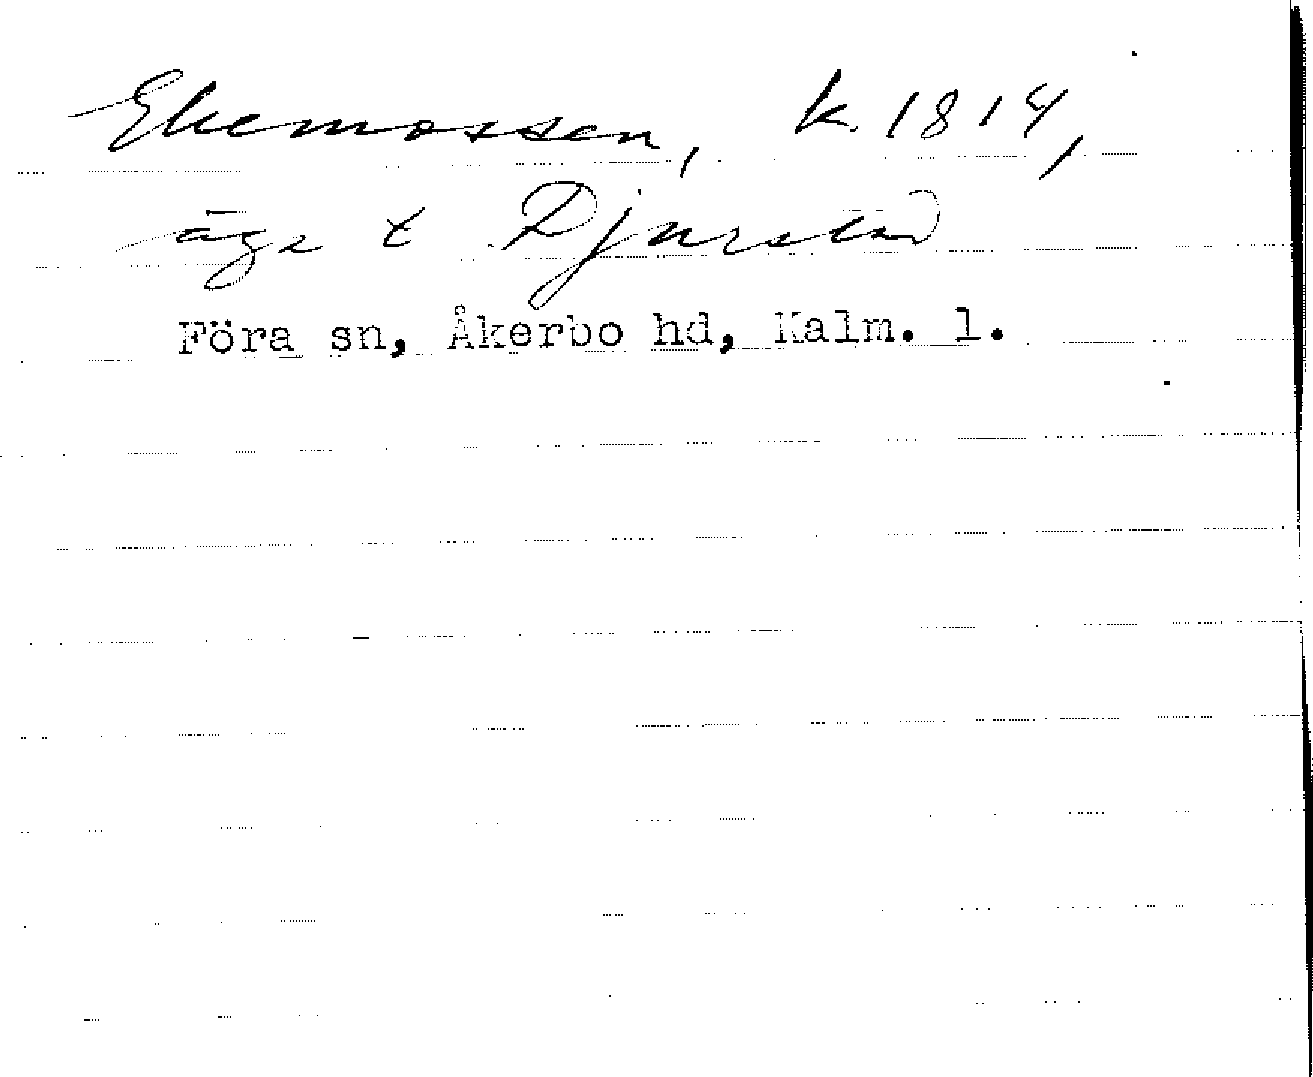 Ekemossen, k. 1814,
äga t Djurstad
Föra sn, Åkerbo hd, Kalm. l.